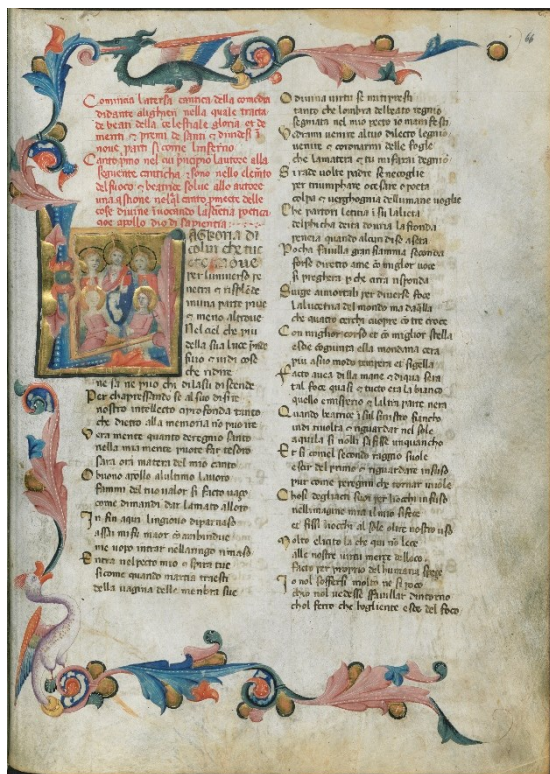 66
Comincia la terza cantica della comedia
di dante alighieri nella quale tracta
de beati della celestiale gloria et de
meriti et premi de santi et dividesi i
nove parti si come linferno
Canto primo nel cui principio lautore alla
seguente canticha et sono nello cleme͂to
del fuoco et beatrice solve allo autore
una q̃stione nel q̃l canto p̃mecte delle
cose divine invocando la scientia poetica
cioe apollo dio di sapientia
LAGLORIA DI
colui che tuc
to move
per luniverso pe
netra et risple͂de
in una parte piue
et meno altrove
Nel ciel che piu
della sua luce p͂nde
fuio et vidi cose
che ridire
ne sa ne puo chi di lasu discende
Per chapressando se al suo disire
nostro intellecto si profonda tanto
che dietro alla memoria no͂ puo ire
Vera mente quanto del regnio santo
nella mia mente puote far tesoro
sara ora matera del mio canto
O buono apollo al ultimo lavoro
fammi del tuo valor si facto vaso
come dimandi dar lamato alloro
In fin aqui lun giogio di parnaso
assai mi fu maor co͂ ambindue
me uopo intrar nellaringo rimaso
Entra nel pecto mio et spira tue
si come quando marsia traesti
della vagina delle membra sue
O divina virtu se mi ti presti
tanto che lombra del beato regnio
segniata nel mio pecto io manifesti
Vedrami venire al tuo dilecto legnio
venire et coronarmi delle foglie
che la matera et tu mi farai degnio
Si rade volte padre se ne coglie
per triumphare o cesare o poeta
colpa et verghognia dell umane voglie
Che parturi letitia in su la lieta
delphicha deita dovria la fronda
peneia quando alcun di se asseta
Pocha favilla gran fiamma seconda
forse diretro a me co͂ miglior voce
si preghera p che cirra risponda
Surge a mortali per diverse foce
la lucerna del mondo ma da q̃lla
che quatro cerchi giugne co͂ tre croce
Con miglior corso et co͂ miglior stella
esce cogiunta et la mondana cera
piu a suo modo tempera et sigella
Facto avea di la mane et di qua sera
tal foce quasi et tucto era la bianco
quello emisperio et laltra parte nera
Quando beatrice in sul sinistro fiancho
vidi rivolta et riguardar nel sole
aquila si no͂lli saffisse unquancho
Et si come l secondo raggio suole
escir del primo et riguardare in suso
pur come peregrin che tornar vuole
Chosi degliacti suoi per li ochi infuso
nell imagine mia il mio si fece
et fissi li occhi al sole oltre nostro uso
Molto e licito la che qui no͂ lece
alle nostre virtu merce del loco
facto per proprio del humana spece
Io nol soffersi molto ne si poco
chio nol vedesse sfavillar dintorno
chol ferro che bogliente esce del foco